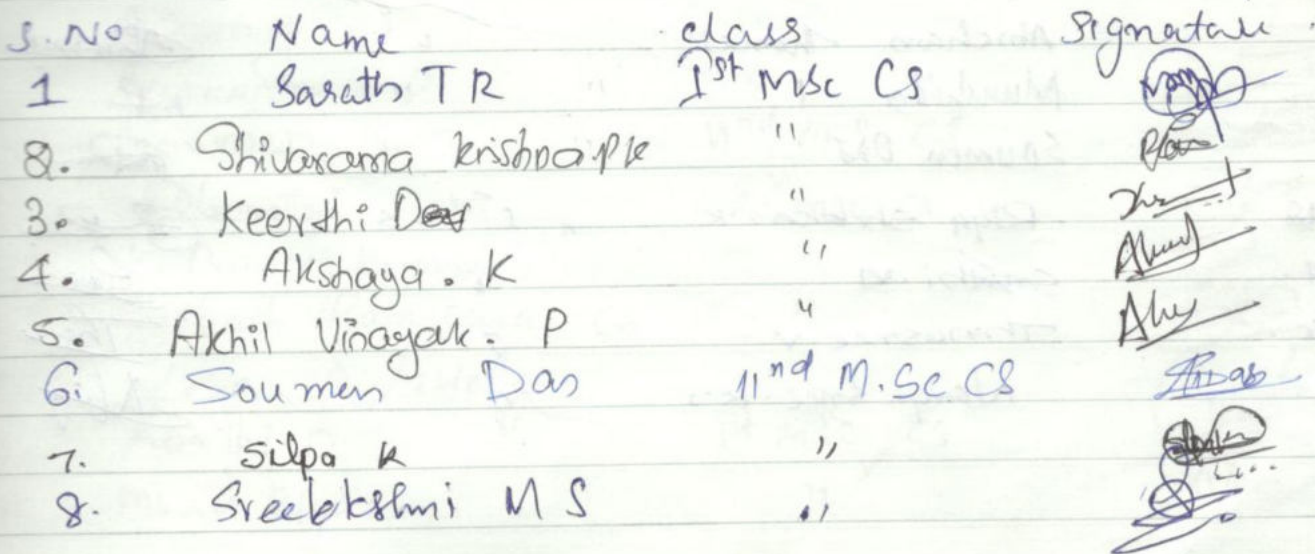 S.No Name class Signature
1 Sarath T R Ist MSc CS
2. Shivarama krishna PK "
3. Keerthi "
4. Akshaya . K "
5. Akhil Vinayak . P "
6. Soumen Das IInd M.Sc CS SDas
7. Silpa K "
8. Sreelekshmi M S "